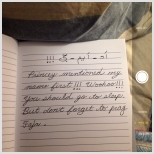 Primcy mentioned my
name first!!! Woohoo!!!
You should go to sleep.
But don't forget to pray
Fajr.